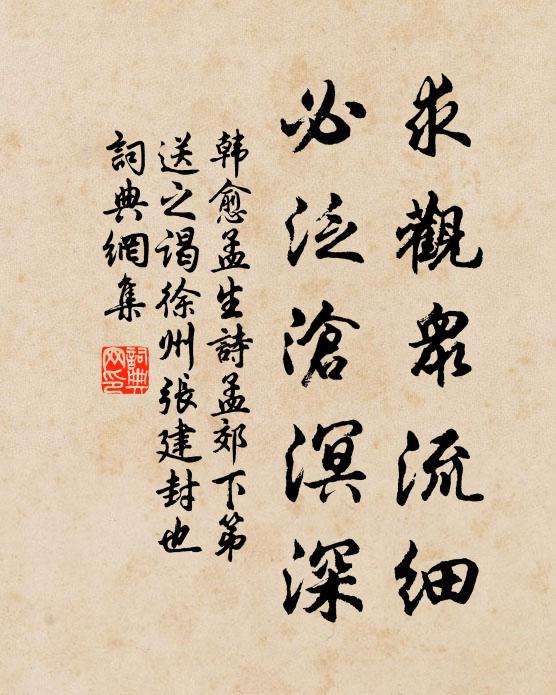 求觀衆流細
必泛滄溟深
韩愈孟生詩孟郊下第
送之谒徐州張建封也
詞典網集
詞典
网印